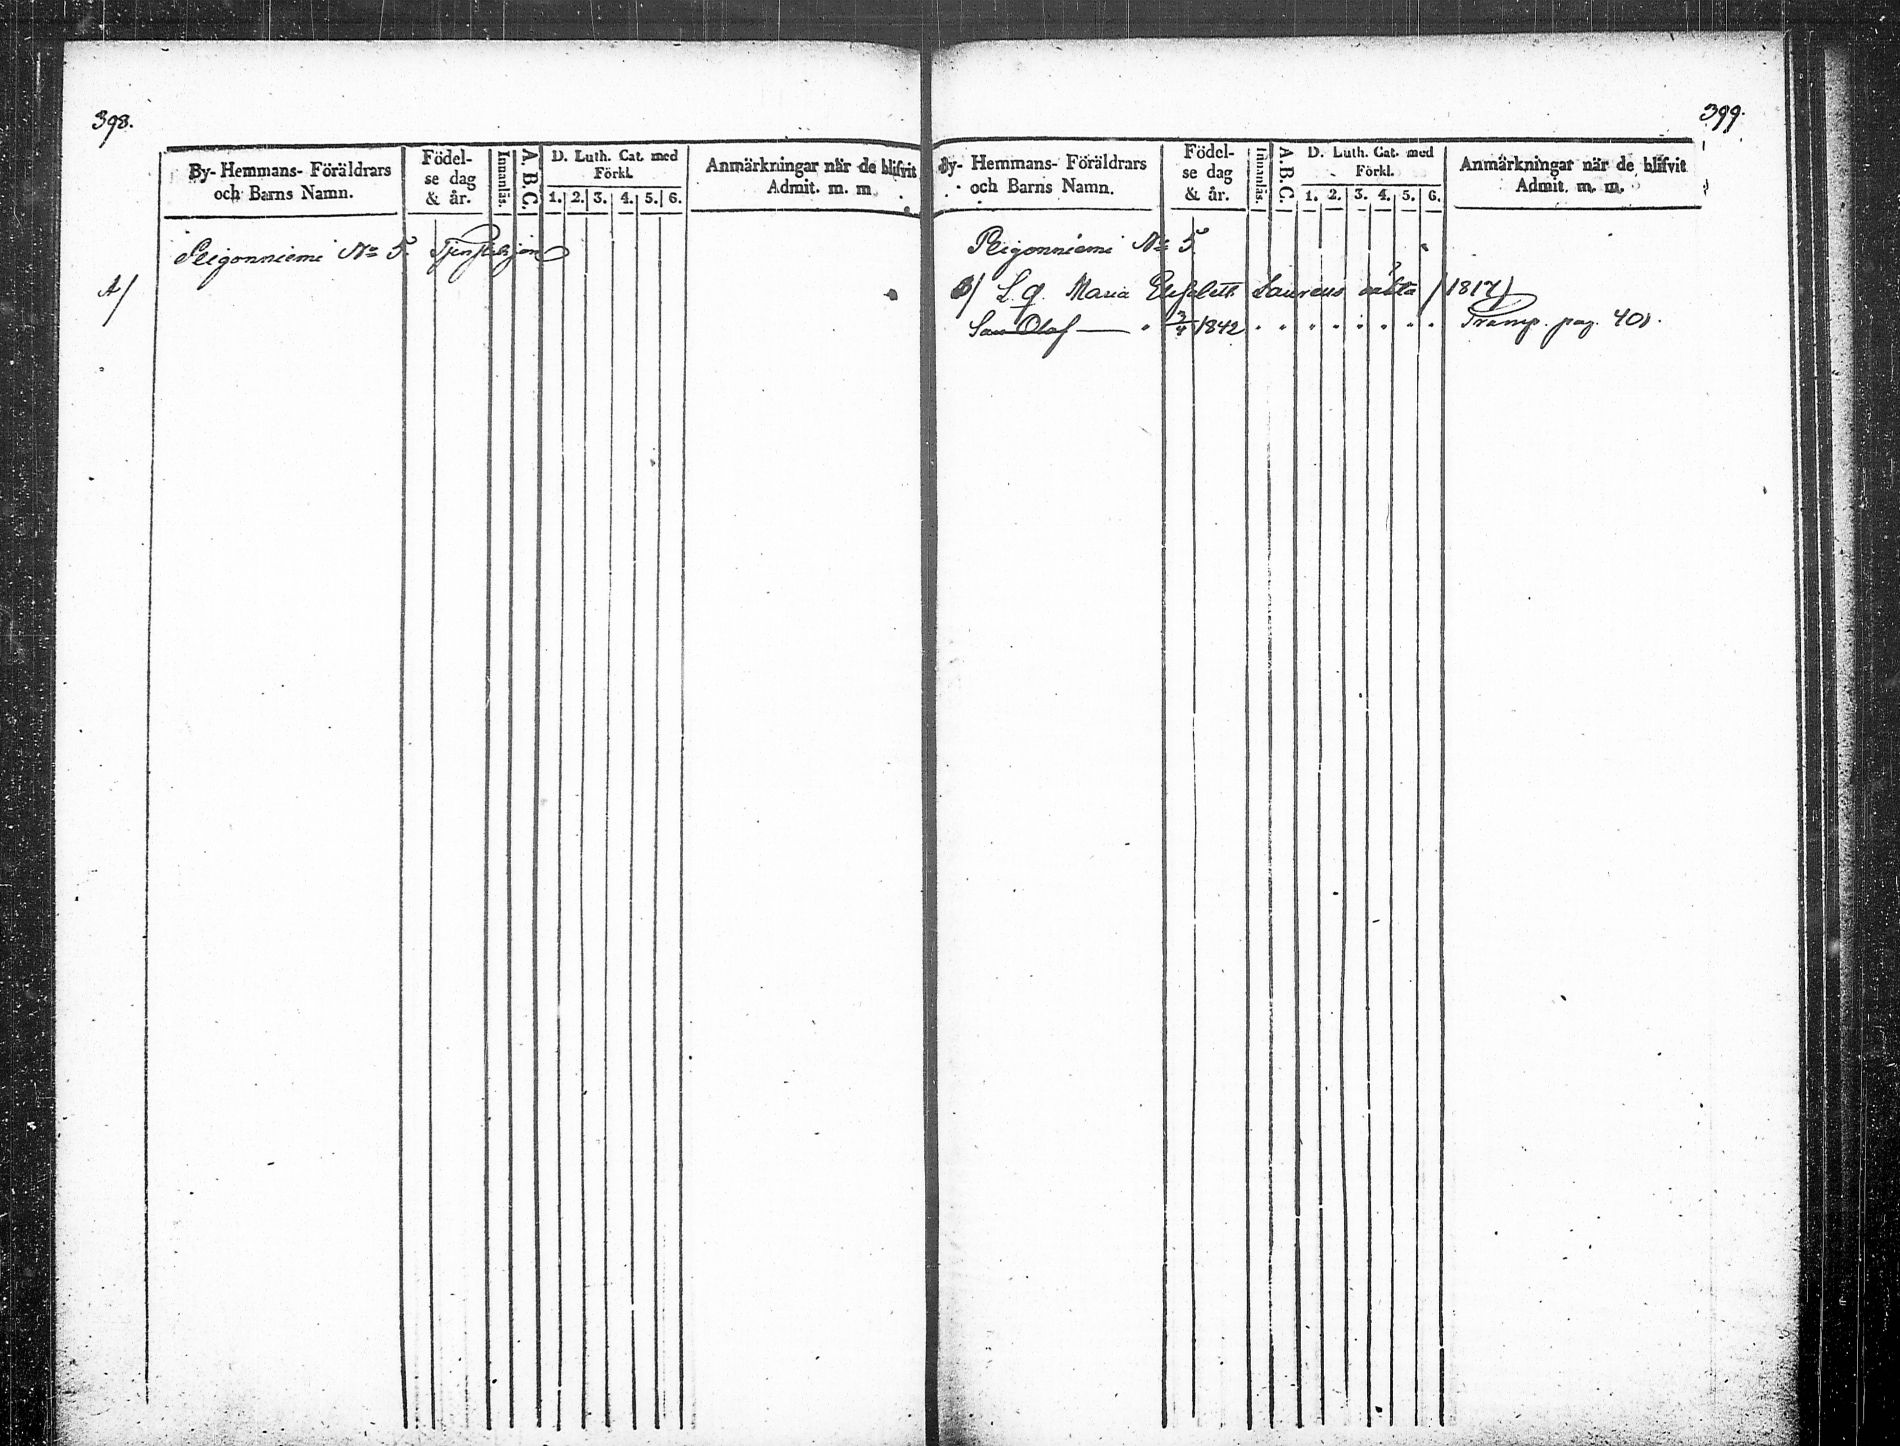 398.
By- Hemmans- Föräldrars
och Barns Namn.
Födel-
se dag
& år.
Innanläs.
A.B.C.
D. Luth. Cat. med
Förkl.
1. 2. 3. 4. 5. 6.
Anmärkningar när de blifvit
Admit. m. m.
Reigonniemi No 5.
A/
399.
By- Hemmans- Föräldrars
och Barns Namn.
Födel-
se dag
& år.
Innanläs.
A.B.C.
D. Luth. Cat. med
Förkl.
1. 2. 3. 4. 5. 6.
Anmärkningar när de blifvit
Admit. m. m.
Reigonniemi No 5.
B/ L. q. Maria Elisabeth Laurens (1817)
Son Olof 3/4 1842 Transp. pag. 401.